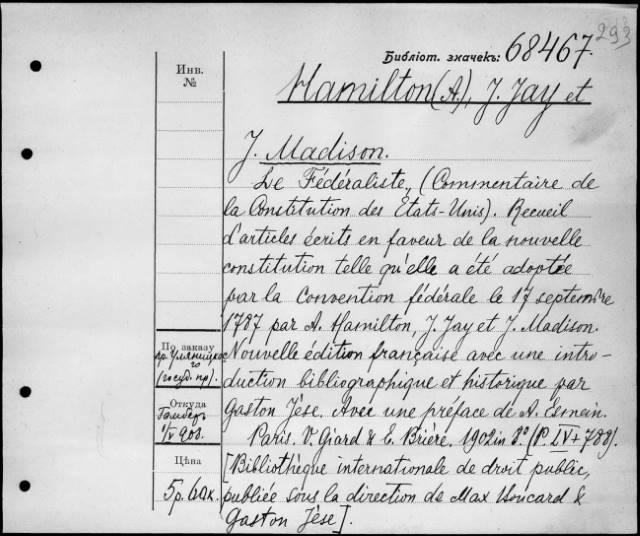 293
Библіот. значекъ: 68467.
Инв.
№
Hamilton (A.), J. Jay et
J. Madison.
Le Fédéraliste, (Commentaire de
la Constitution des Etats-Unis). Recueil
d'articles écrits en faveur de la nouvelle
constitution telle qu'elle a été adoptée
par la Convention fédérale le 17 septembre
1787 par A. Hamilton, J. Jay et J. Madison.
Nouvelle édition française avec une intro-
duction bibliographique et historique par
Gaston Jèse. Avec une préface de A. Esmein.
Paris. V. Giard & E. Brière. 1902 in 8° (P. LV+788).
[Bibliothèque internationale de droit public,
publiée sous la direction de Max Boucard &
Gaston Jèse].
По заказу
пр. Уляницкаго
(госуд. пр).
Откуда
1/V 903.
Цѣна
5 р. 60 к.